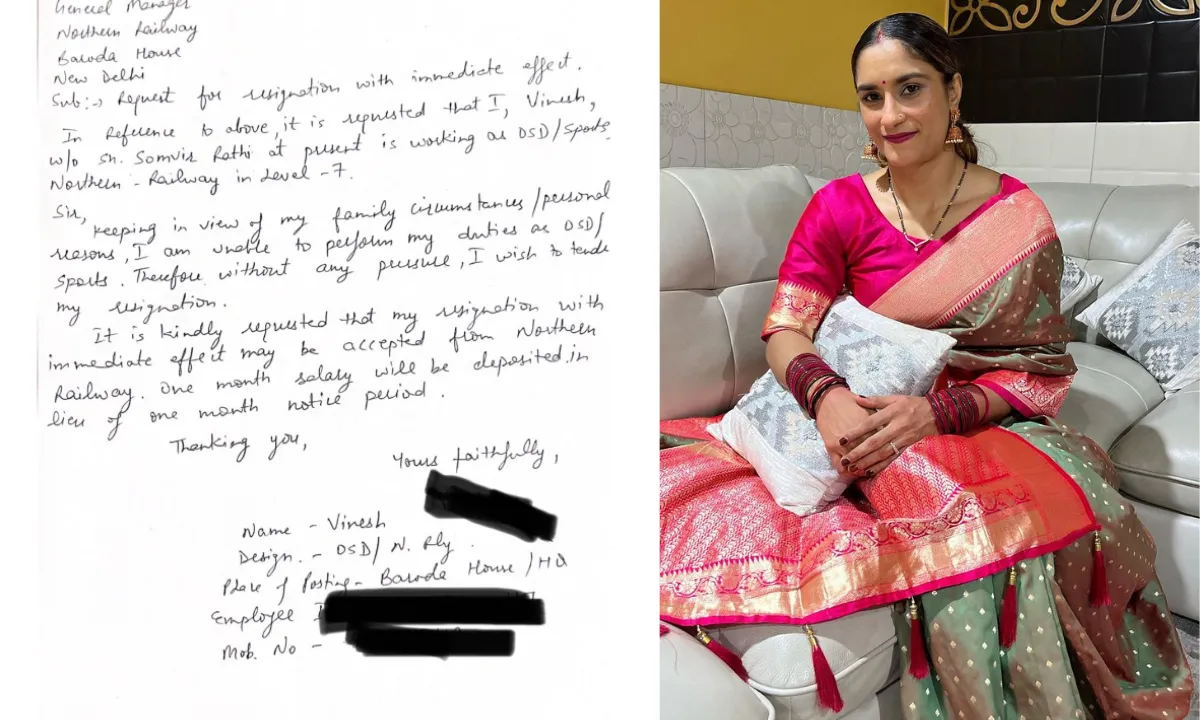 General Manager
Northern Railway
Baroda House
New Delhi
Sub:→ Request for resignation with immediate effect.
In Reference to above, it is requested that I, Vinesh,
w/o Sh. Somvir Rathi at present is working as OSD/Sports
Northern-Railway in Level-7.
Sir,
Keeping in view of my family circumstances/personal
reasons, I am unable to perform my duties as OSD/
Sports. Therefore without any pressure, I wish to tender
my resignation.
It is kindly requested that my resignation with
immediate effect may be accepted from Northern
Railway. One month salary will be deposited in
lieu of one month notice period.
Thanking you,
Yours faithfully,
Name - Vinesh
Design. - OSD/ N. Rly.
Place of Posting- Baroda House /HQ
Employee
Mob. No -